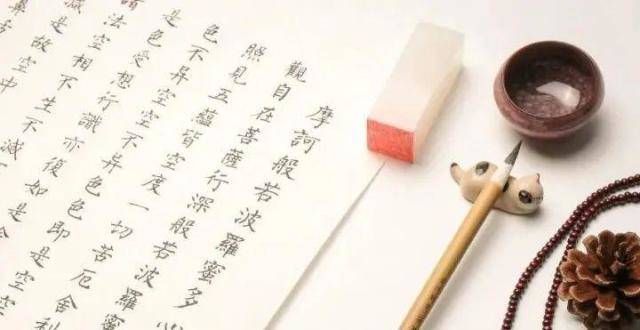 摩訶般若波羅蜜多心
觀自在菩薩行深般若波羅蜜
照見五蘊皆空度一切苦厄舍利
色不异空空不异色色即是空空
是色受想行識亦復如是舍
法空相不生不滅不
減是故空中
鼻舌